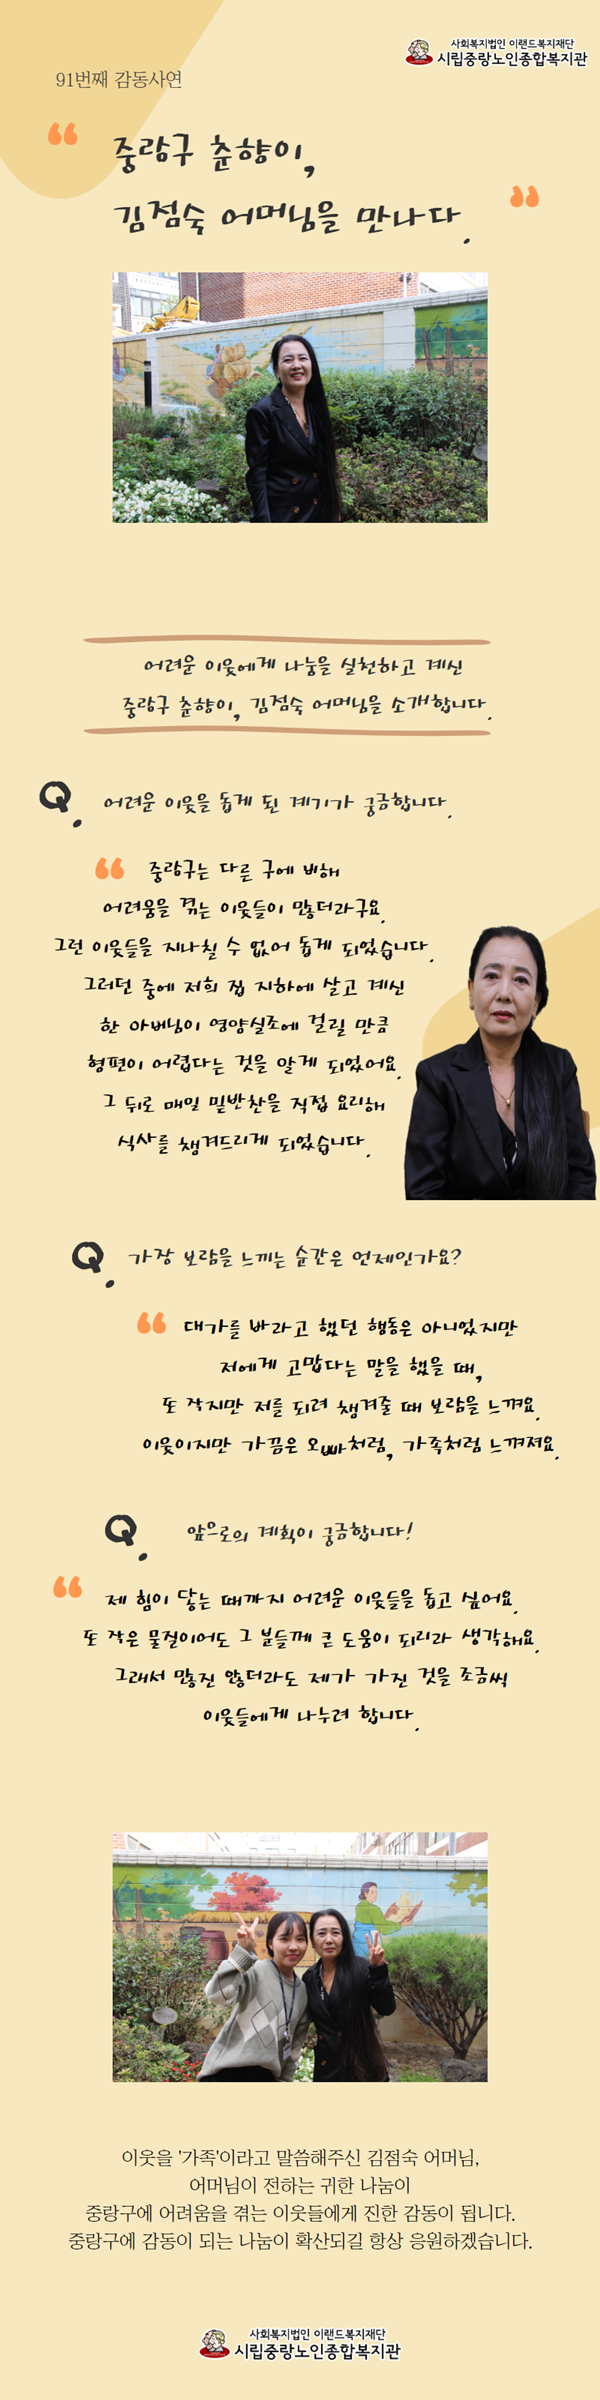 사회복지법인 이랜드복지재단
시립중랑노인종합복지관
91번째 감동사연
“
중랑구 춘향이,
김점숙 어머님을 만나다.
”
어려운 이웃에게 나눔을 실천하고 계신
중랑구 춘향이, 김점숙 어머님을 소개합니다.
Q. 어려운 이웃을 돕게 된 계기가 궁금합니다.
“ 중랑구는 다른 구에 비해
어려움을 겪는 이웃들이 많더라구요.
그런 이웃들을 지나칠 수 없어 돕게 되었습니다.
그러던 중에 저희 집 지하에 살고 계신
한 아버님이 영양실조에 걸릴 만큼
형편이 어렵다는 것을 알게 되었어요.
그 뒤로 매일 밑반찬을 직접 요리해
식사를 챙겨드리게 되었습니다.
Q. 가장 보람을 느끼는 순간은 언제인가요?
“ 대가를 바라고 했던 행동은 아니었지만
저에게 고맙다는 말을 했을 때,
또 작지만 저를 되려 챙겨줄 때 보람을 느껴요.
이웃이지만 가끔은 오빠처럼, 가족처럼 느껴져요.
Q. 앞으로의 계획이 궁금합니다!
“ 제 힘이 닿는 때까지 어려운 이웃들을 돕고 싶어요.
또 작은 물질이어도 그 분들께 큰 도움이 되리라 생각해요.
그래서 많진 않더라도 제가 가진 것을 조금씩
이웃들에게 나누려 합니다.
이웃을 '가족'이라고 말씀해주신 김점숙 어머님,
어머님이 전하는 귀한 나눔이
중랑구에 어려움을 겪는 이웃들에게 진한 감동이 됩니다.
중랑구에 감동이 되는 나눔이 확산되길 항상 응원하겠습니다.
사회복지법인 이랜드복지재단
시립중랑노인종합복지관